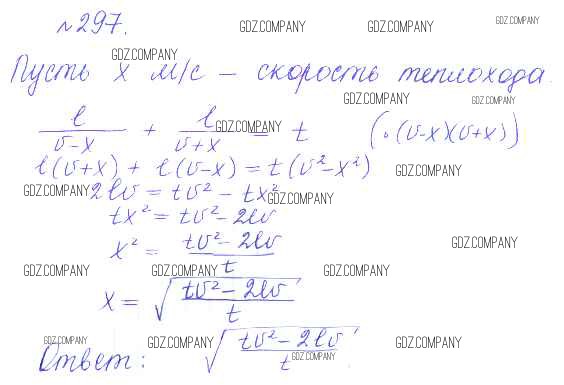 №297.
GDZ.COMPANY GDZ.COMPANY GDZ.COMPANY
GDZ.COMPANY
Пусть x м/с – скорость теплохода.
GDZ.COMPANY GDZ.COMPANY
l/(v-x) + l/(v+x) = t (·(v-x)(v+x))
GDZ.COMPANY
l(v+x) + l(v-x) = t(v²-x²)
GDZ.COMPANY
GDZ.COMPANY 2lv = tv² - tx²
GDZ.COMPANY
tx² = tv² - 2lv
x² = (tv² - 2lv)/t
GDZ.COMPANY
GDZ.COMPANY GDZ.COMPANY GDZ.COMPANY
x = √((tv² - 2lv)/t)
GDZ.COMPANY GDZ.COMPANY GDZ.COMPANY
Ответ: √((tv² - 2lv)/t)
GDZ.COMPANY